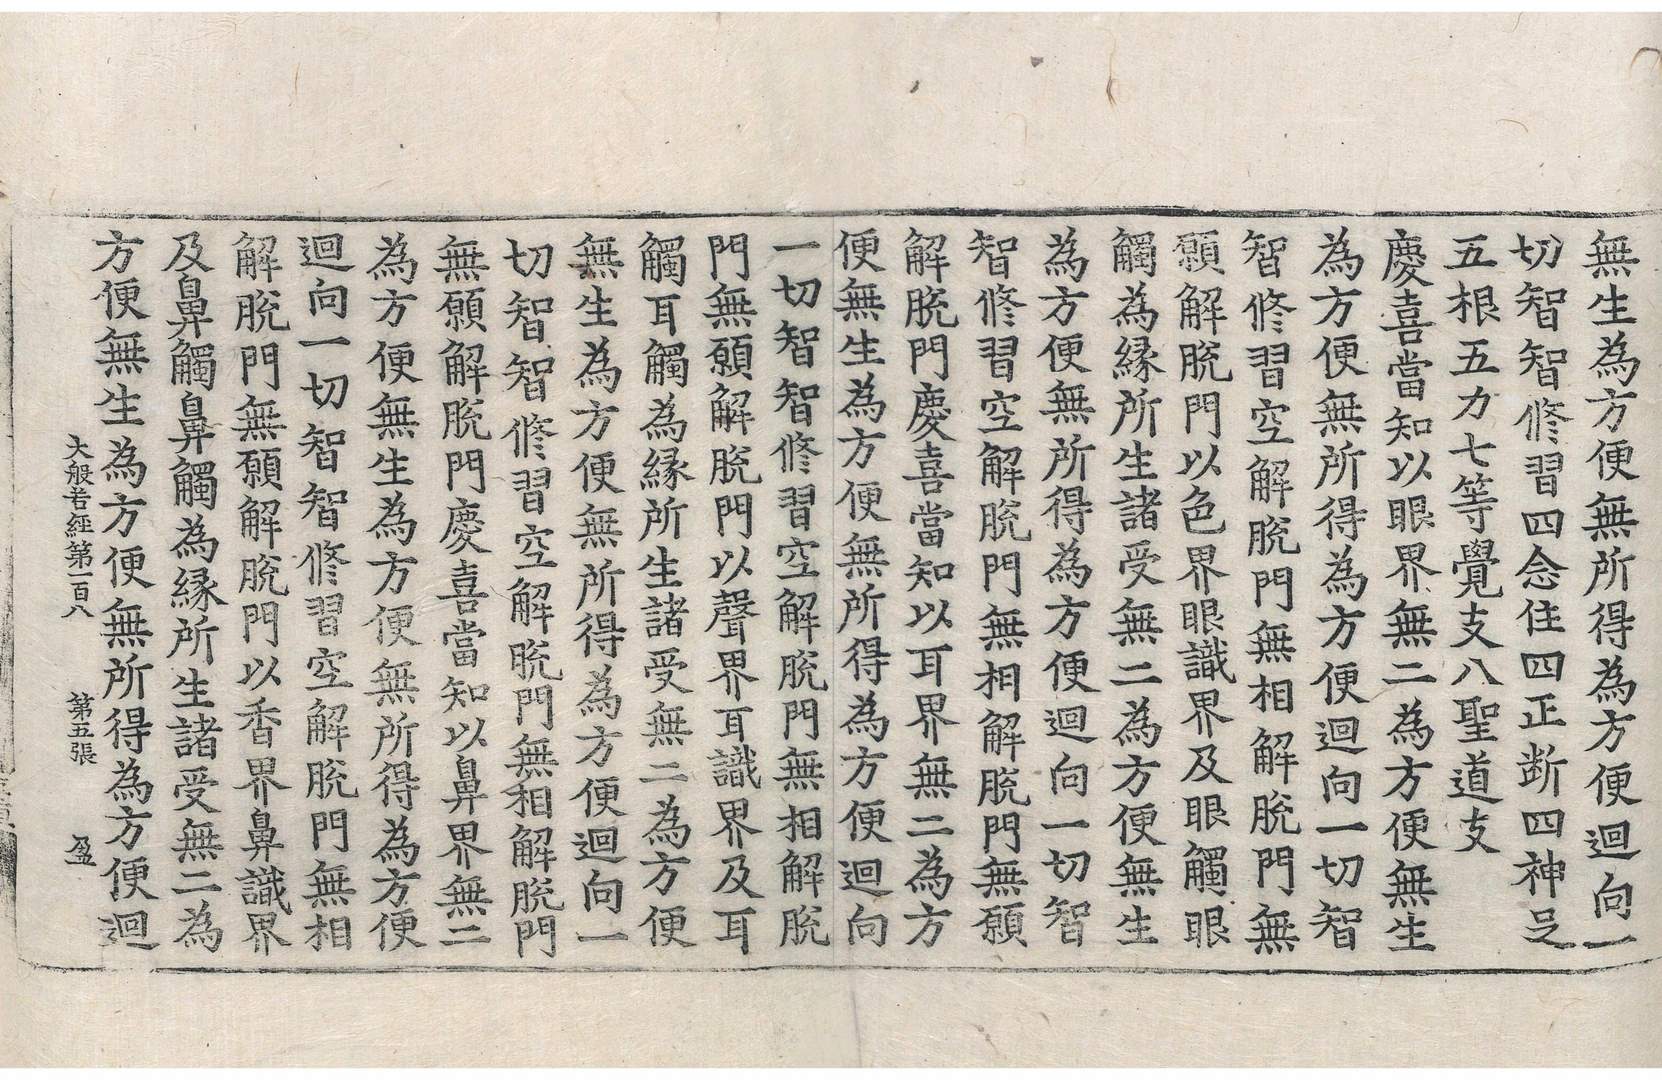 無生為方便無所得為方便迴向一
切智智修習四念住四正断四神足
五根五力七等覺支八聖道支
慶喜當知以眼界無二為方便無生
為方便無所得為方便迴向一切智
智修習空解脫門無相解脫門無
願解脫門以色界眼識界及眼觸眼
觸為縁所生諸受無二為方便無生
為方便無所得為方便迴向一切智
智修習空解脫門無相解脫門無願
解脫門慶喜當知以耳界無二為方
便無生為方便無所得為方便迴向
一切智智修習空解脫門無相解脫
門無願解脫門以聲界耳識界及耳
觸耳觸為縁所生諸受無二為方便
無生為方便無所得為方便迴向一
切智智修習空解脫門無相解脫門
無願解脫門慶喜當知以鼻界無二
為方便無生為方便無所得為方便
迴向一切智智修習空解脫門無相
解脫門無願解脫門以香界鼻識界
及鼻觸鼻觸為縁所生諸受無二為
方便無生為方便無所得為方便迴
大般若經第一百八 第五張 盈